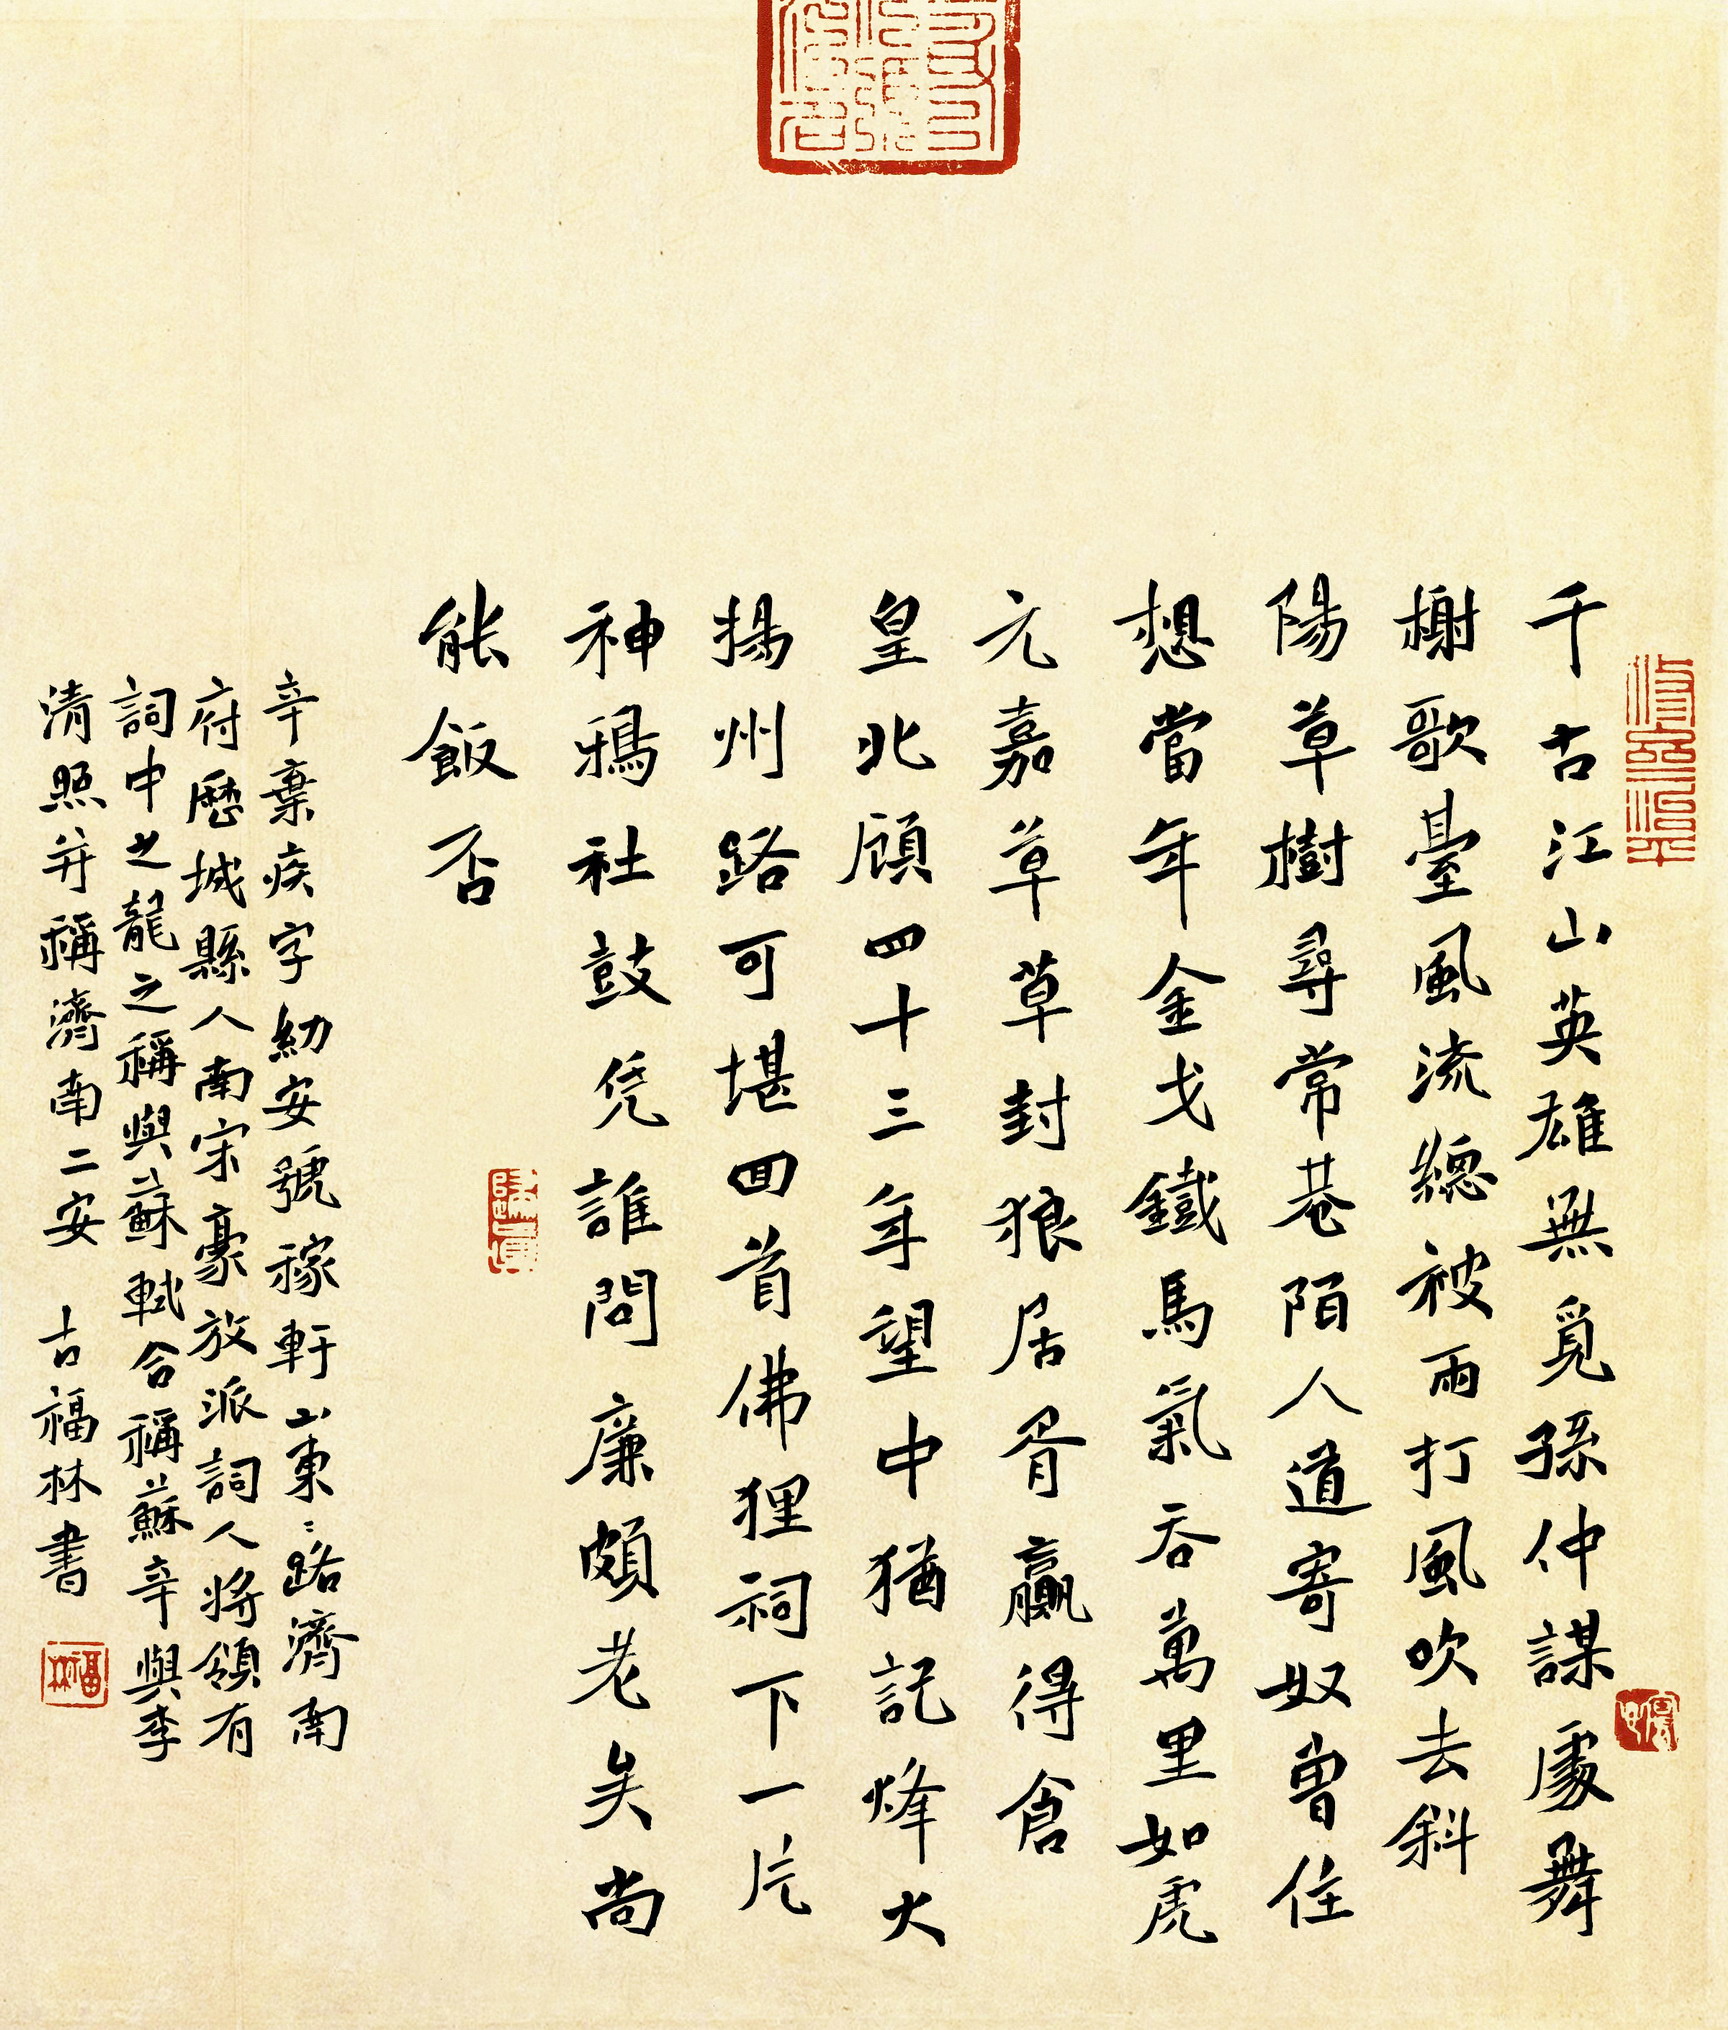 千古江山英雄無覓孫仲謀處舞
榭歌臺風流總被雨打風吹去斜
陽草樹尋常巷陌人道寄奴曾住
想當年金戈鐵馬氣吞萬里如虎
元嘉草草封狼居胥贏得倉
皇北顧四十三年望中猶記烽火
揚州路可堪回首佛狸祠下一片
神鴉社鼓凭誰問廉頗老矣尚
能飯否
辛棄疾字幼安號稼軒山東〻路濟南
府歷城縣人南宋豪放派詞人將領有
詞中之龍之稱與蘇軾合稱蘇辛與李
清照并稱濟南二安 吉福林書
福林